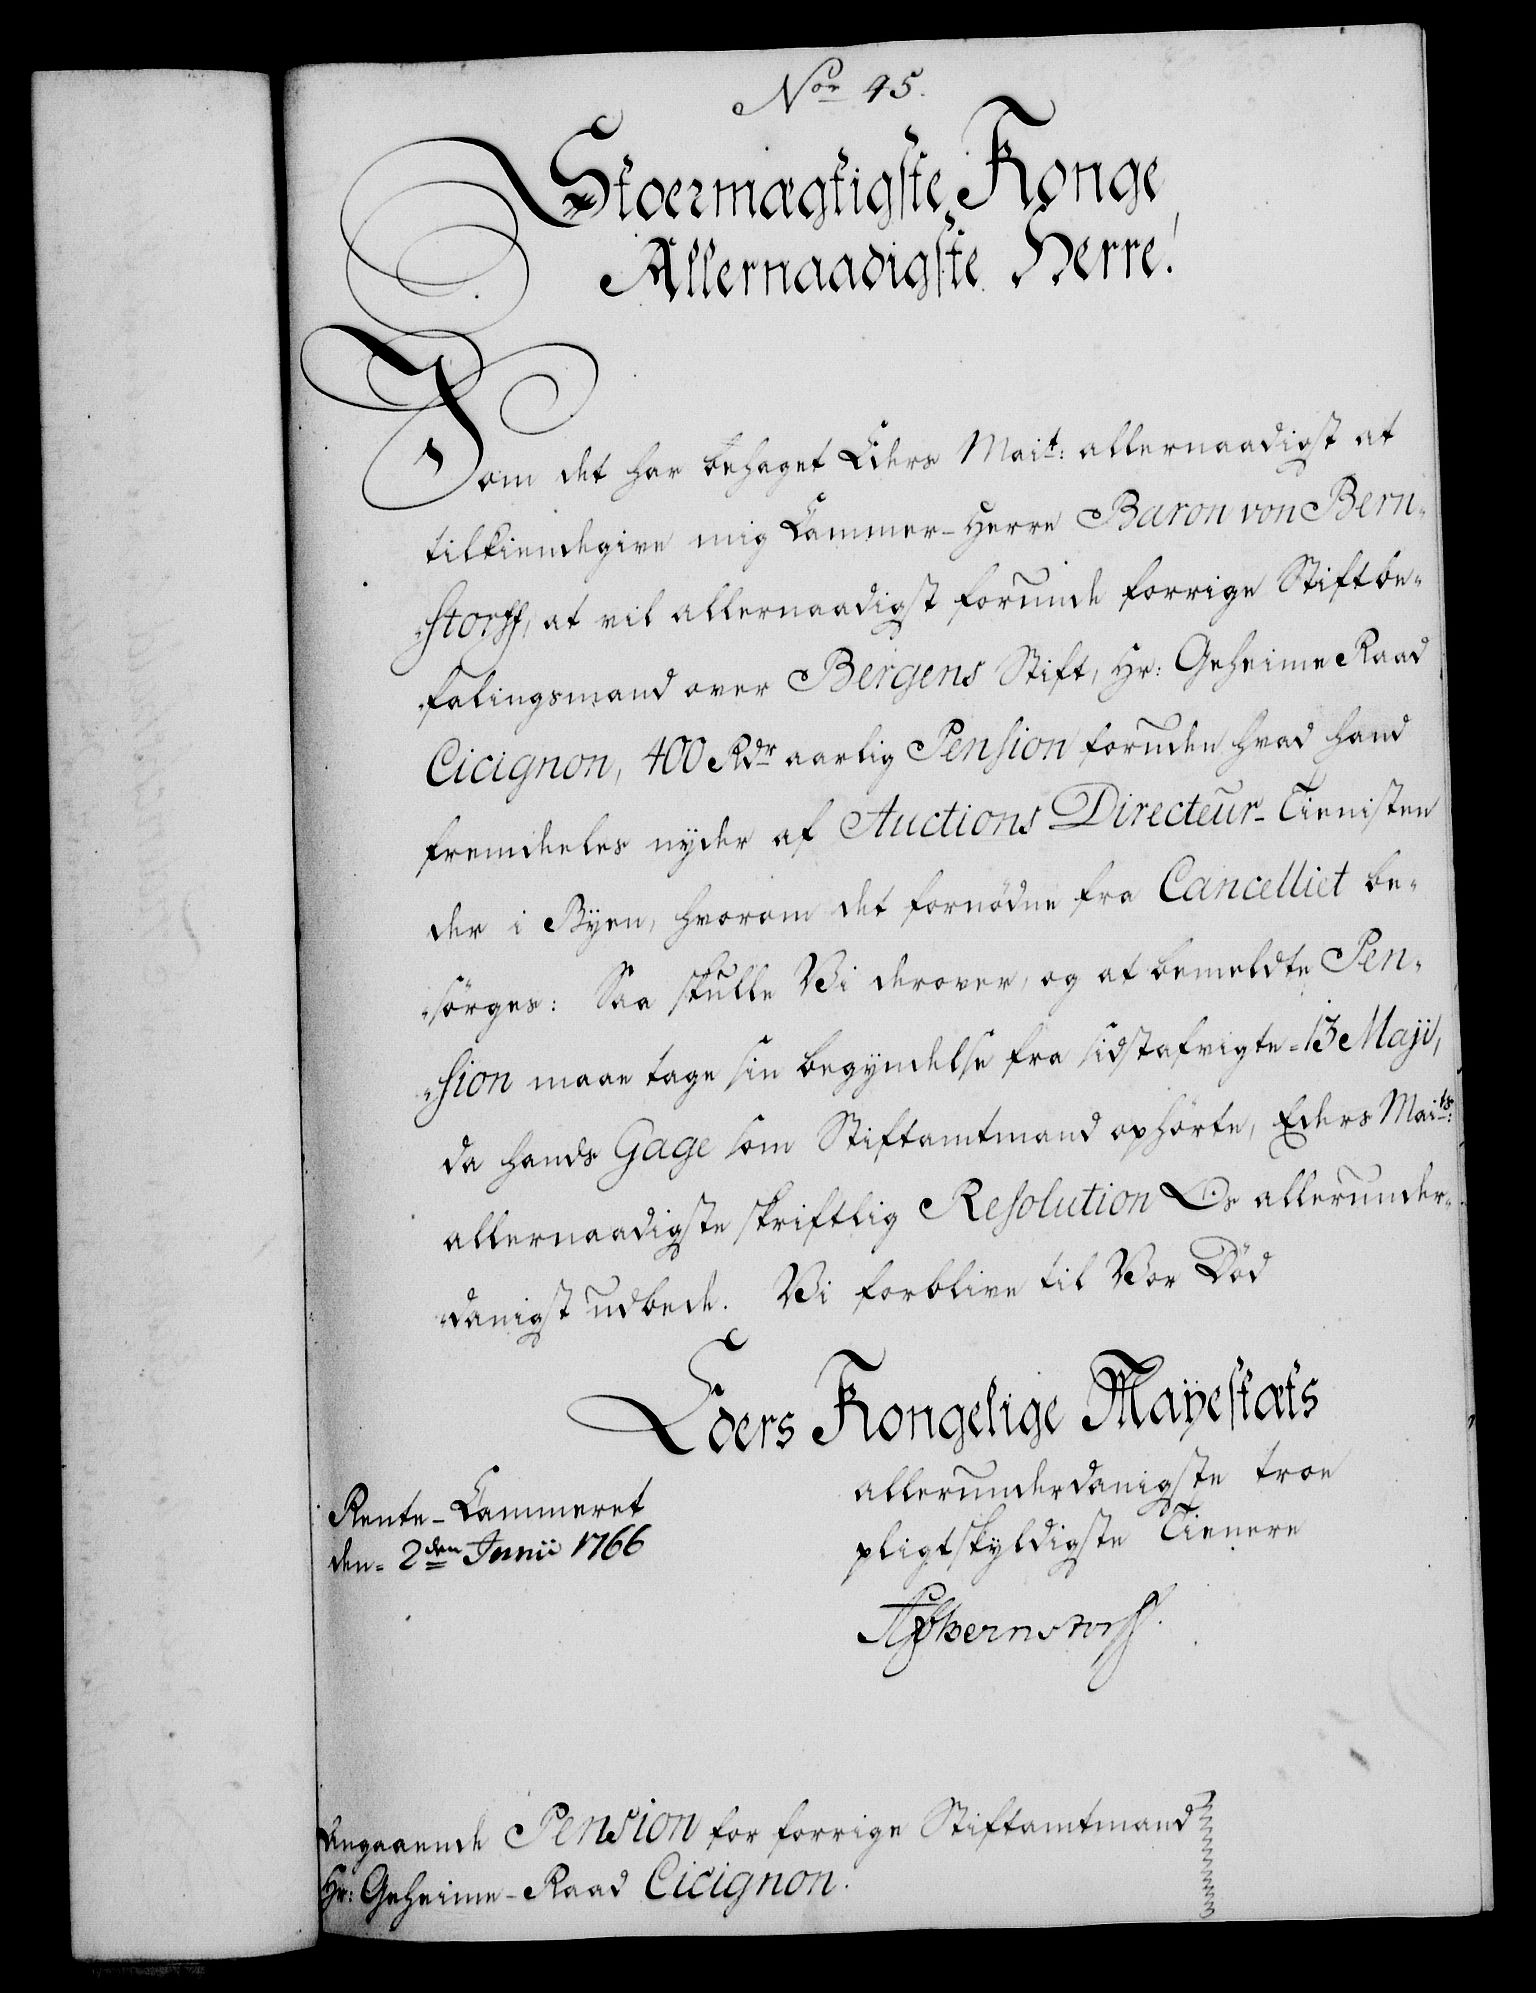 Nor 45.
Stoermægtigste Konge
Allernaadigste Herre!
Som det har behaget Eders Mait: allernaadigst at
tilkiendegive mig Cammer-Herre Baron von Bern-
-storff, at vil allernaadigst forunde forrige Stiftbe-
-falingsmand over Bergens Stift, Hr: Geheime Raad
Cicignon, 400 Rdr aarlig Pension foruden hvad hand
fremdeeles nyder af Auctions Directeur-Tienisten
der i Byen, hvorom det fornødne fra Cancelliet be-
-sørges: Saa skulle Vi derover, og at bemeldte Pen-
-sion maae tage sin begyndelse fra sidstafvigte 13 Maji,
da hands Gage som Stiftamtmand ophørte, Eders Maits:
allernaadigste skriftlig Resolution Os allerunder-
-danigst udbede. Vi forblive til Vor Død
Eders Kongelige Mayestæts
allerunderdanigste troe
pligtskyldigste Tienere
Rente-Cammeret
den 2den Junii 1766
APBernstorff.
Angaaende Pension for forrige Stiftamtmand
Hr: Geheime-Raad Cicignon.